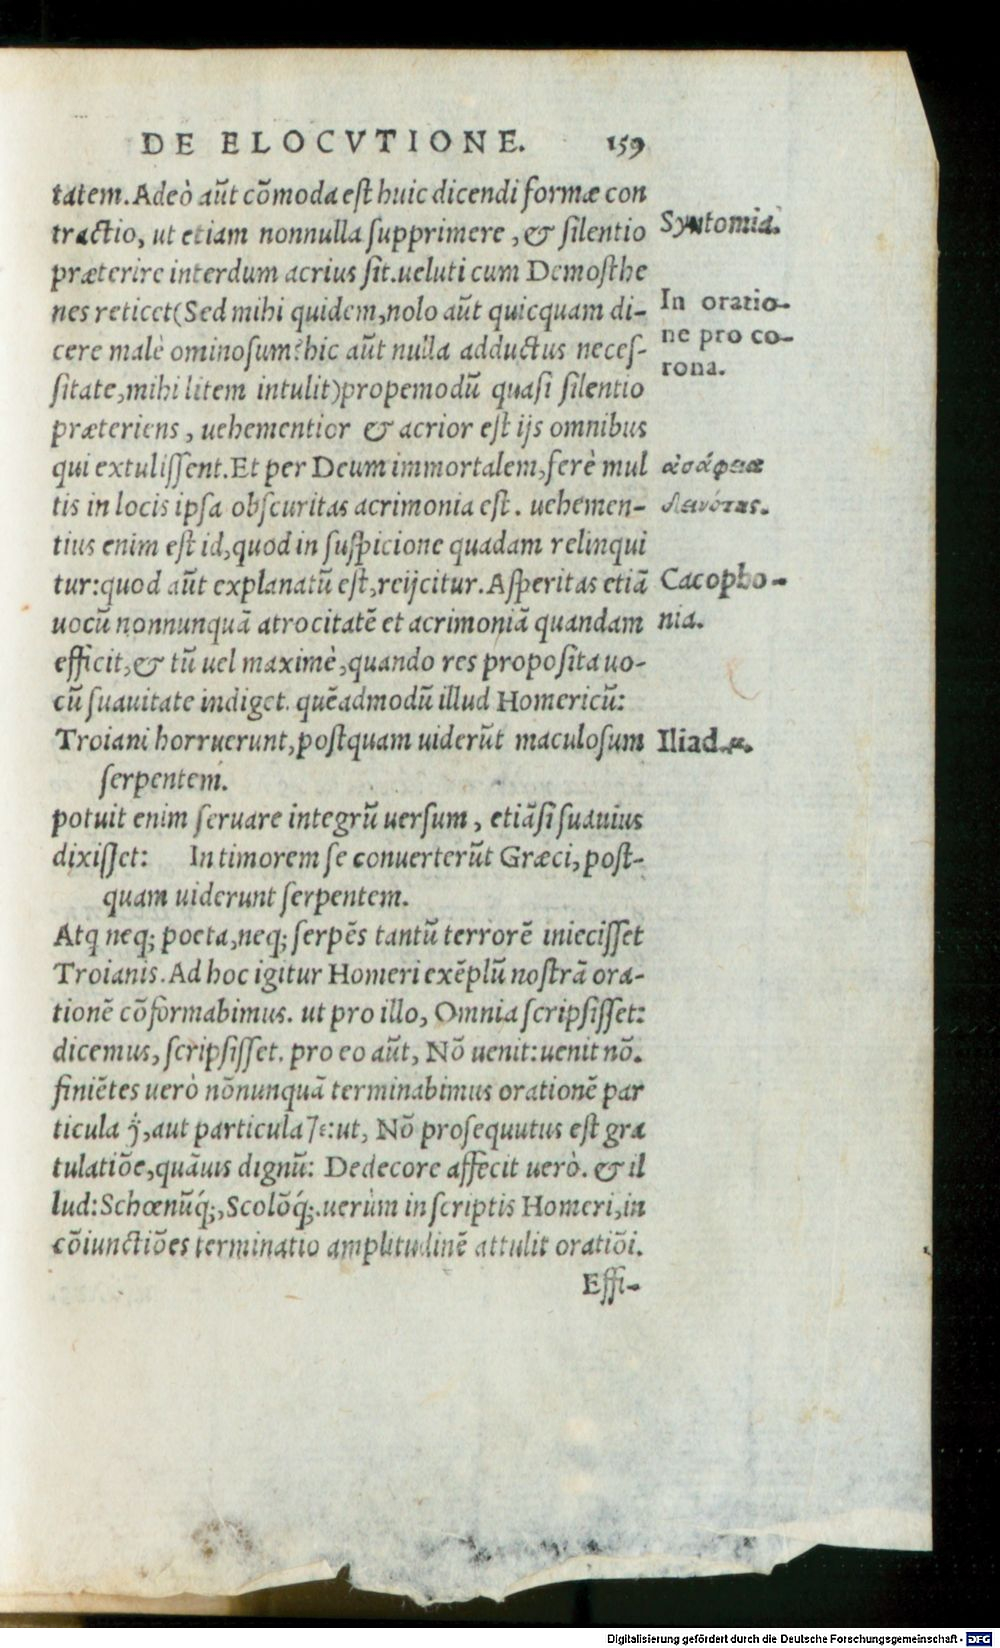 DE ELOCVTIONE. 159
tatem. Adeò aũt cõmoda est huic dicendi formæ con
tractio, ut etiam nonnulla supprimere, & silentio
præterire interdum acrius sit. ueluti cum Demosthe
nes reticet (Sed mihi quidem, nolo aũt quicquam di-
cere malè ominosum: hic aũt nulla adductus neces-
sitate, mihi litem intulit) propemodũ quasi silentio
præteriens, uehementior & acrior est ijs omnibus
qui extulissent. Et per Deum immortalem, ferè mul
tis in locis ipsa obscuritas acrimonia est. uehemen-
tius enim est id, quod in suspicione quadam relinqui
tur: quod aũt explanatũ est, reijcitur. Asperitas etiã
uocũ nonnunquã atrocitatẽ et acrimoniã quandam
efficit, & tũ uel maximè, quando res proposita uo-
cũ suauitate indiget. quẽadmodũ illud Homericũ:
Troiani horruerunt, postquam uiderũt maculosum
serpentem.
potuit enim seruare integrũ uersum, etiãsi suauius
dixisset: In timorem se conuerterũt Græci, post-
quam uiderunt serpentem.
Atq neq; poeta, neq; serpẽs tantũ terrorẽ iniecisset
Troianis. Ad hoc igitur Homeri exẽplũ nostrã ora-
tionẽ cõformabimus. ut pro illo, Omnia scripsisset:
dicemus, scripsisset. pro eo aũt, Nõ uenit: uenit nõ.
finiẽtes uerò nõnunquã terminabimus orationẽ par
ticula , aut particula : ut, Nõ prosequutus est gra
tulatiõe, quãuis dignũ: Dedecore affecit uerò. & il
lud: Schœnũq́;, Scolõq́;. uerùm in scriptis Homeri, in
cõiunctiões terminatio amplitudinẽ attulit oratiõi.
Effi-
Syntomia.
In oratio-
ne pro co-
rona.
ἀσάφεια
δεινότης.
Cacopho-
nia.
Iliad.μ.
Digitalisierung gefördert durch die Deutsche Forschungsgemeinschaft - DFG